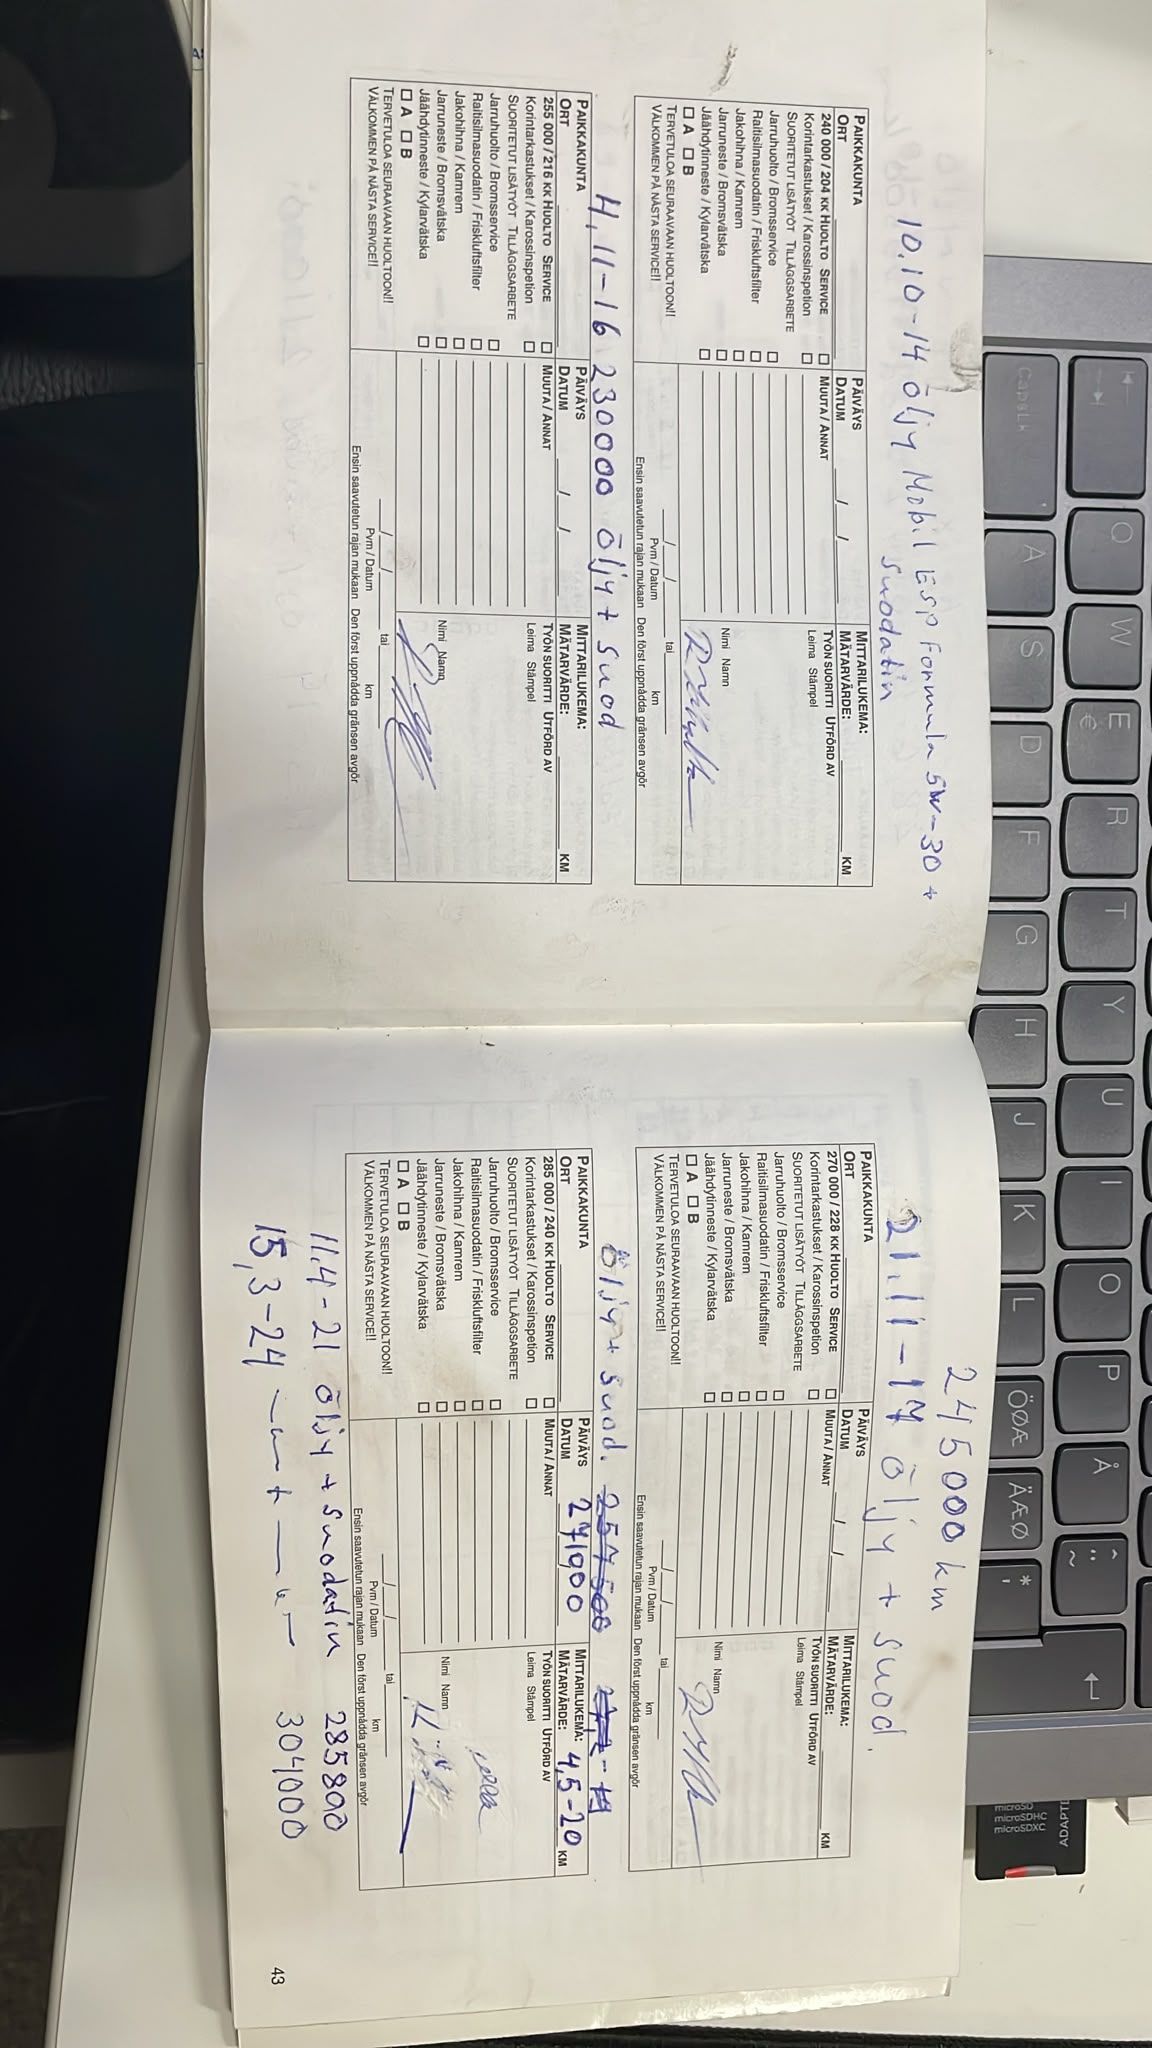 10.10-14 öljy Mobil ESP Formula 5W-30 +
suodatin
PAIKKAKUNTA
ORT
PÄIVÄYS
DATUM / /
MITTARILUKEMA:
MÄTARVÄRDE: KM
240 000 / 204 KK HUOLTO SERVICE ☐
MUUTA / ANNAT
TYÖN SUORITTI UTFÖRD AV
Korintarkastukset / Karossinspetion ☐
Leima Stämpel
SUORITETUT LISÄTYÖT TILLÄGGSARBETE
Jarruhuolto / Bromsservice ☐
Raitisilmasuodatin / Friskluftsfilter ☐
Jakohihna / Kamrem ☐
Jarruneste / Bromsvätska ☐
Nimi Namn
Jäähdytinneste / Kylarvätska ☐
☐ A ☐ B
TERVETULOA SEURAAVAAN HUOLTOON!!
VÄLKOMMEN PÅ NÄSTA SERVICE!!
/ / tai km
Pvm / Datum
Ensin saavutetun rajan mukaan Den först uppnådda gränsen avgör
4,11-16 230000 öljy + suod
PAIKKAKUNTA
ORT
PÄIVÄYS
DATUM / /
MITTARILUKEMA:
MÄTARVÄRDE: KM
255 000 / 216 KK HUOLTO SERVICE ☐
MUUTA / ANNAT
TYÖN SUORITTI UTFÖRD AV
Korintarkastukset / Karossinspetion ☐
Leima Stämpel
SUORITETUT LISÄTYÖT TILLÄGGSARBETE
Jarruhuolto / Bromsservice ☐
Raitisilmasuodatin / Friskluftsfilter ☐
Jakohihna / Kamrem ☐
Jarruneste / Bromsvätska ☐
Nimi Namn
Jäähdytinneste / Kylarvätska ☐
☐ A ☐ B
TERVETULOA SEURAAVAAN HUOLTOON!!
VÄLKOMMEN PÅ NÄSTA SERVICE!!
/ / tai km
Pvm / Datum
Ensin saavutetun rajan mukaan Den först uppnådda gränsen avgör
245000 km
21.11-17 öljy + suod.
PAIKKAKUNTA
ORT
PÄIVÄYS
DATUM / /
MITTARILUKEMA:
MÄTARVÄRDE: KM
270 000 / 228 KK HUOLTO SERVICE ☐
MUUTA / ANNAT
TYÖN SUORITTI UTFÖRD AV
Korintarkastukset / Karossinspetion ☐
Leima Stämpel
SUORITETUT LISÄTYÖT TILLÄGGSARBETE
Jarruhuolto / Bromsservice ☐
Raitisilmasuodatin / Friskluftsfilter ☐
Jakohihna / Kamrem ☐
Jarruneste / Bromsvätska ☐
Nimi Namn
Jäähdytinneste / Kylarvätska ☐
☐ A ☐ B
TERVETULOA SEURAAVAAN HUOLTOON!!
VÄLKOMMEN PÅ NÄSTA SERVICE!!
/ / tai km
Pvm / Datum
Ensin saavutetun rajan mukaan Den först uppnådda gränsen avgör
öljy + suod. 257500
PAIKKAKUNTA
ORT
PÄIVÄYS
DATUM 271000
MITTARILUKEMA:
MÄTARVÄRDE: 4,5-20 KM
285 000 / 240 KK HUOLTO SERVICE ☐
MUUTA / ANNAT
TYÖN SUORITTI UTFÖRD AV
Korintarkastukset / Karossinspetion ☐
Leima Stämpel
SUORITETUT LISÄTYÖT TILLÄGGSARBETE
Jarruhuolto / Bromsservice ☐
Raitisilmasuodatin / Friskluftsfilter ☐
Jakohihna / Kamrem ☐
Jarruneste / Bromsvätska ☐
Nimi Namn
Jäähdytinneste / Kylarvätska ☐
☐ A ☐ B
TERVETULOA SEURAAVAAN HUOLTOON!!
VÄLKOMMEN PÅ NÄSTA SERVICE!!
/ / tai km
Pvm / Datum
Ensin saavutetun rajan mukaan Den först uppnådda gränsen avgör
11.4-21 öljy + suodatin 285800
15,3-24 —"— + —"— 304000
43
Q W E R T Y U I O P Å
CapsLk A S D F G H J K L ÖØÆ ÄÆØ
€
ADAPT
microSD
microSDHC
microSDXC